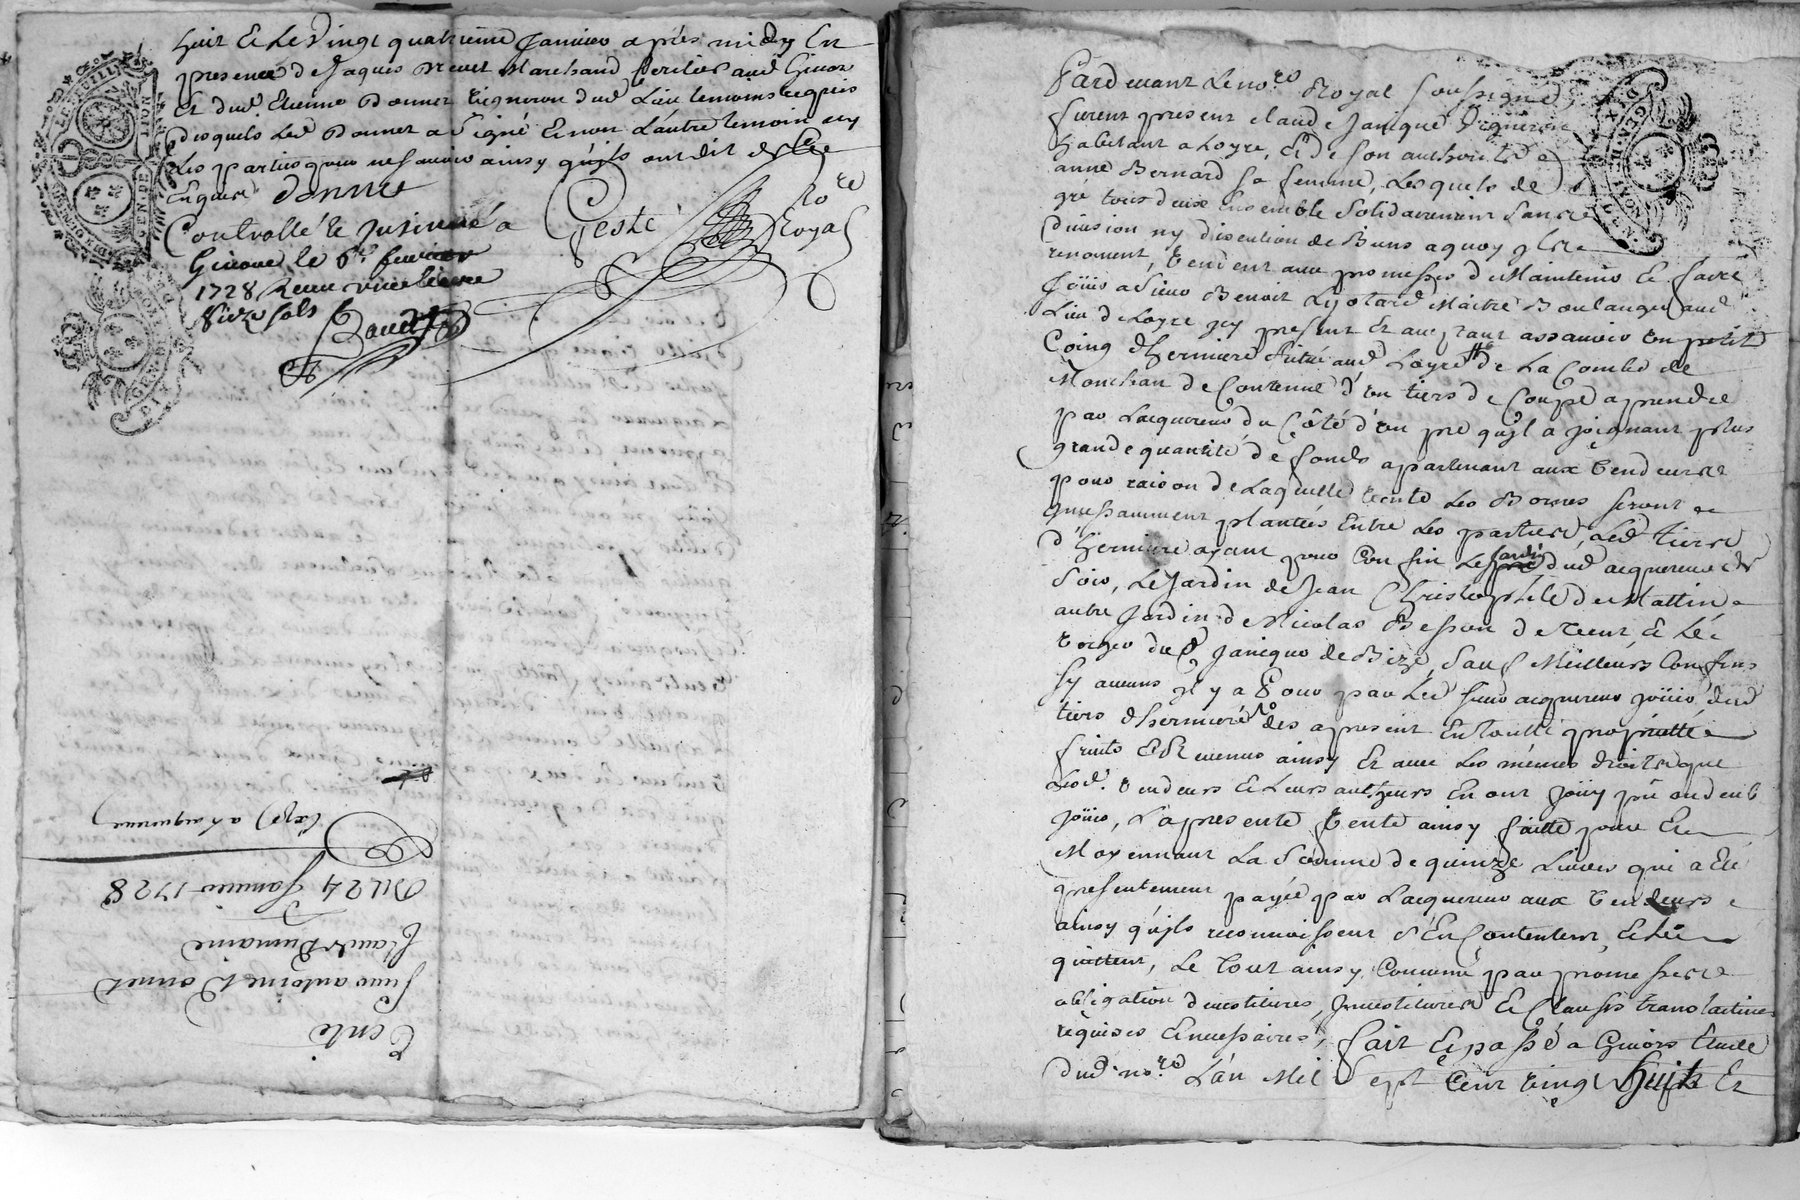 huit Et Le Vingt quatrieme Janvier apres midy En
presence de Jaques Marchand aud Givors
Et dud Etienne Bonnet Vigneron dud Lieu temoins requis
desquels Led Bonnet a Signé Et non L'autre temoin ny
Les parties pour ne scavoir ainsy qu'ils ont dit de ce
Enquis Bonnet
Controllé Et Insinué a
Givors le fevrier
1728 Receu
Seize sols
Geste No re
Royal
Exp) a Lacquereur
Du 24 Janvier 1728
Claude Dumaine
Sieur antoine Bonnet
Vente
Pardevant Le no.re Royal Soussigné
furent present Claude Janique Vigneron
habitant a Loyre, Et de son authorité
anne Bernard sa femme, Lesquels de
gré tous deux Ensemble Solidairement Sans
Division ny discution de Biens a quoy ils
renoncent, Vendent avec promesses de Maintenir Et faire
joüir a Sieur Benoit Maitre Boulanger aud
Lieu de Loyre icy present Et acceptant assavoir un petit
Coing d'herniere Scitué aud Loyre de La Combe de
Monchan de Contenue d'un tiers de Coupé a prendre
par Lacquereur du Côté d'un pre qu'il a joignant plus
grande quantité de fonds apartenant aux Vendeurs
pour raison de Laquelle vente Les Bornes seront
incessamment plantées Entre Les parties, Led tiers
d'herniere ayant pour Confin Le jardin dud acquereur de
Soir, Le Jardin de Jean Christophle de Mattin
autre Jardin de Nicolas Besson de Vent, Et Le
Verger du Sr Janique de Bize, Sauf Meilleurs Confins
Sy aucuns il y a Pour par Led sieur acquereur joüir dud
tiers d'herniere des a present En toutte proprietté
fruits Et Revenus ainsy Et avec Les mémes droits que
Lesd. Vendeurs Et Leurs autheurs En ont joüy pû ou deub
joüir, La presente Vente ainsy faitte pour Et
Moyennant La Somme de quinze Livres qui a Eté
presentement payée par Lacquereur aux Vendeurs
ainsy qu'ils reconnoissent S'En Contentent, Et Len
quittent, Le tout ainsy Convenu par promesses
obligation devestitures, Investitures Et Clauses translatives
requises Et necessaires, fait Et passé a Givors Etude
dud. no.re L'an Mil Sept Cent vingt Huit Et